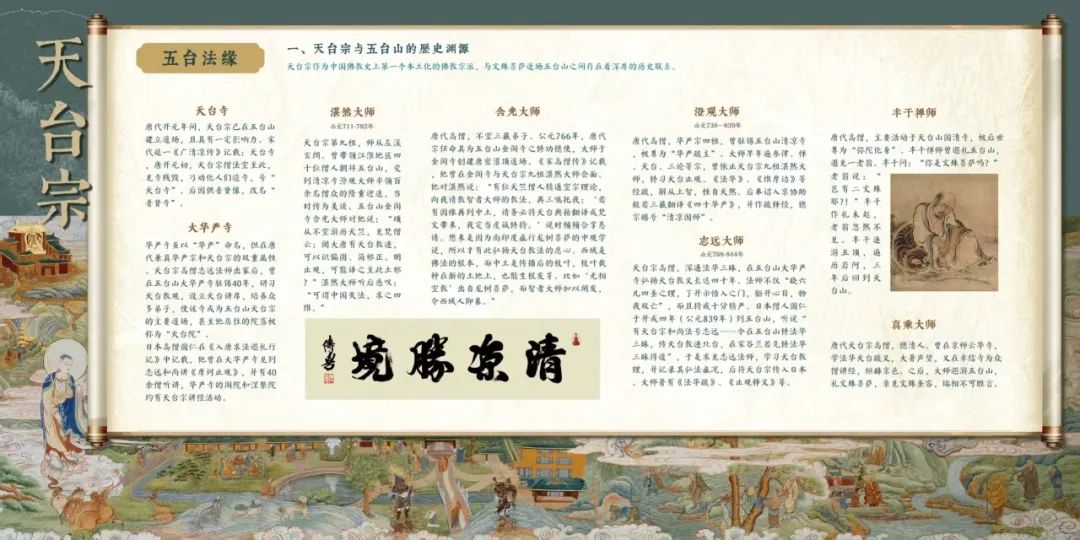 天台宗
五台法缘
一、天台宗与五台山的歷史渊源
天台宗作为中国佛教史上第一个本土化的佛教宗派，与文殊菩萨道场五台山之间存在着深厚的历史联系。
天台寺
唐代开元年间，天台宗已在五台山
建立道场，且具有一定影响力。宋
代延一《广清凉传》记载：天台寺
，唐开元初，天台宗僧法室至此，
见寺残毁，乃劝化人们造寺，号“
天台寺”。后因供普贤像，改名“
普贤寺”。
大华严寺
华严寺虽以“华严”命名，但在唐
代兼具华严宗和天台宗的双重属性
。天台宗高僧志远法师出家后，曾
在五台山大华严寺驻锡40年，研习
天台教观，设立天台讲席，培养众
多弟子，使该寺成为五台山天台宗
的主要道场，甚至他居住的院落被
称为“天台院”。
日本高僧圆仁在《入唐求法巡礼行
记》中记载，他曾在大华严寺见到
志远和尚讲《摩诃止观》，并有40
余僧听讲，华严寺的阁院和涅槃院
均有天台宗讲经活动。
湛然大师
公元711-782年
天台宗第九祖，师从左溪
玄朗，曾带领江淮地区四
十位僧人朝拜五台山，受
到清凉寺澄观大师率领百
余名僧众的隆重迎送，当
时传为美谈。五台山金阁
寺含光大师对他说：“嘱
从不空游历天竺，见梵僧
云：闻大唐有天台教迹，
可以识偏圆、简邪正、明
止观，可能译之至此土耶
？”湛然大师听后感叹：
“可谓中国失法，求之四
维。”
含光大师
唐代高僧，不空三藏弟子。公元766年，唐代
宗任命其为五台山金阁寺之修功德使，大师于
金阁寺创建唐密灌顶道场，《宋高僧传》记载
，他曾在金阁寺与天台宗九祖湛然大师会面。
他对湛然说：“有位天竺僧人精通空宗理论，
向我请教智者大师的教法，再三嘱托我：‘若
有因缘再到中土，请务必将天台典籍翻译成梵
文带来，我定当虔诚修持。’说时频频合掌恳
请。想来是因为南印度盛行龙树菩萨的中观学
说，所以才有此弘扬天台教法的愿心。西域是
佛法的根本，而中土是传播后的枝叶，枝叶栽
种在新的土地上，也能生根发芽。比如‘无相
空教’出自龙树菩萨，而智者大师加以阐发，
令西域人仰慕。”
清凉勝境
澄观大师
公元738—839年
唐代高僧，华严宗四祖，曾驻锡五台山清凉寺
，被尊为“华严疏主”。大师早年遍参律、禅
、天台、三论等宗，曾依止天台宗九祖湛然大
师，修习天台止观、《法华》、《维摩诘》等
经疏，解从上智，性自天然。后奉诏入京协助
般若三藏翻译《四十华严》，并作疏释经，德
宗赐号“清凉国师”。
志远大师
公元768-844年
天台宗高僧，深通法华三昧，在五台山大华严
寺弘扬天台教义长达四十年。法师不仅“晓六
凡四圣之理，了开示悟入之门，豁开心目，物
我双亡”，而且持戒十分精严。日本僧人圆仁
于开成四年（公元839年）到五台山，听说“
有天台宗和尚法号志远……今在五台山修法华
三昧，传天台教迹北台，在宋谷兰若先修法华
三昧得道”，于是求见志远法师，学习天台教
理，并记录其弘法盛况，后将天台宗传入日本
。大师著有《法华疏》、《止观释义》等。
丰干禅师
唐代高僧，主要活动于天台山国清寺，被后世
尊为“弥陀化身”。丰干禅师曾巡礼五台山，
遇见一老翁。丰干问：“你是文殊菩萨吗？”
老翁说：“
岂有二文殊
耶？！”丰干
作礼未起，
老翁忽然不
见。丰干遂
游五顶，遍
历岩阿，三
年后回到天
台山。
真乘大师
唐代天台宗高僧，德清人，曾在京师云华寺，
学法华天台疏义，大著声望，又在章信寺为众
僧讲经，烜赫京邑。之后，大师巡游五台山，
礼文殊菩萨，亲见文殊圣容，瑞相不可胜言。